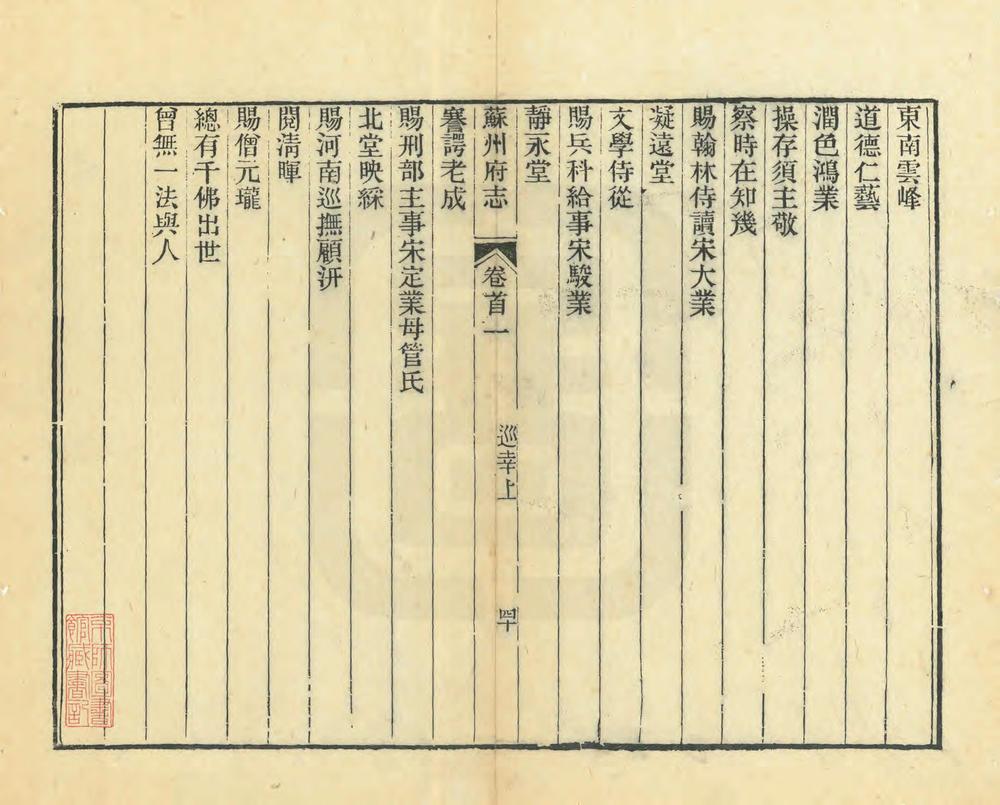 東南雲峰
道德仁藝
潤色鴻業
操存須主敬
察時在知幾
賜翰林侍讀宋大業
凝遠堂
文學侍從
賜兵科給事宋駿業
靜永堂
蘇州府志 卷首一 巡幸上 四十
謇諤老成
賜刑部主事宋定業母管氏
北堂映綵
賜河南巡撫顧汧
閱清暉
賜僧元瓏
總有千佛出世
曾無一法與人
東師圖書
館藏書記